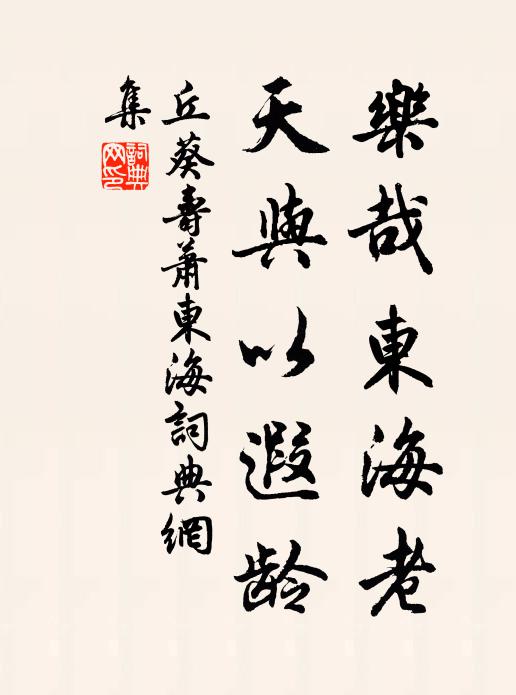 樂哉東海老
天與以遐龄
丘葵壽蕭東海詞典網
集
詞典
网印